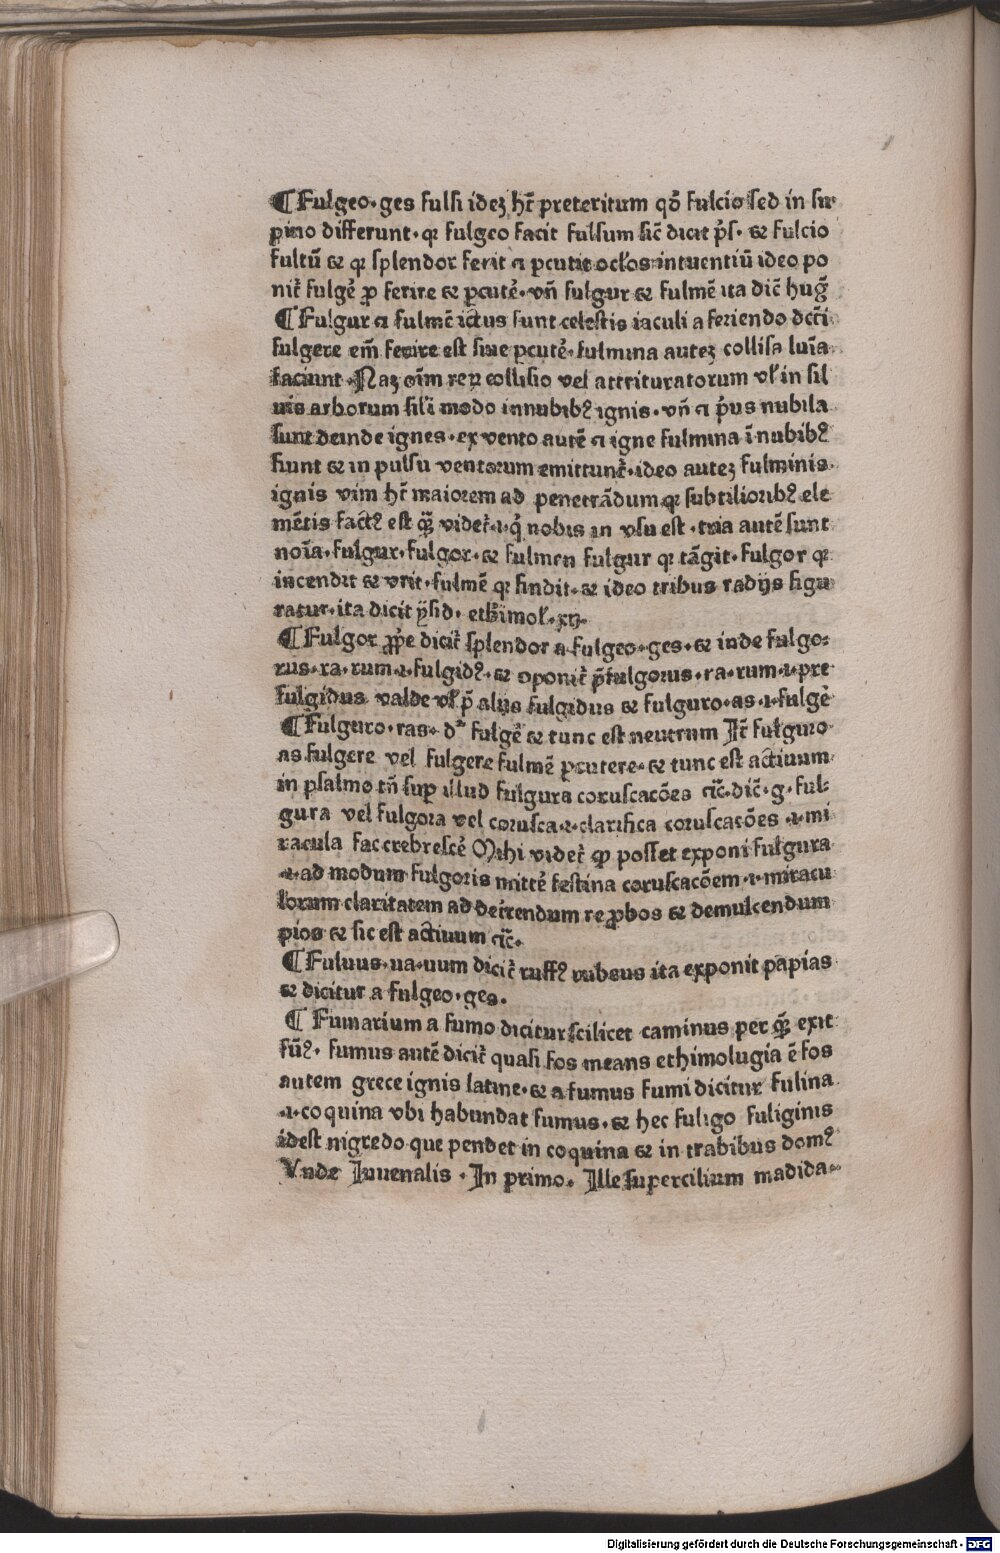 ¶Fulgeo·ges fulsi ideꝫ hr̃ preteritum qđ fulcio sed in su
pino differunt·qꝛ fulgeo facit fulsum sic̃ dicit p̃s·⁊ fulcio
fultũ ⁊ qꝛ splendor ferit ⁊ ꝑcutit oclos intuentiũ ideo po
nit̃ fulgẽ ꝓ ferire ⁊ ꝑcutẽ·vñ fulgur ⁊ fulmẽ ita dic̃ hug̃
¶Fulgur ⁊ fulmẽ ictus sunt celestis iaculi a feriendo dc̃ti
fulgere em̃ ferire est siue ꝑcutẽ·fulmina auteꝫ collisa luĩa
faciunt·Naꝫ oĩm reꝝ collisio vel attrituratorum vl̃ in sil
uis arborum sil̃i modo in nubibꝰ ignis·vñ ⁊ p̃us nubila
sunt deinde ignes·ex vento autẽ ⁊ igne fulmina ĩ nubibꝰ
fiunt ⁊ in pulsu ventorum emittunt̃·ideo auteꝫ fulminis
ignis vim hr̃ maiorem ad penetrãdum qꝛ subtilioribꝰ ele
mẽtis factꝰ est q̃ꝫ videt̃·i·q̃ nobis in vsu est·tria autẽ sunt
noĩa·fulgur·fulgor·⁊ fulmen fulgur qꝛ tãgit·fulgor qꝛ
incendit ⁊ vrit·fulmẽ qꝛ findit·⁊ ideo tribus radijs figu
ratur·ita dicit ysid·ethimol·xiij·
¶Fulgor ꝓp̃e dicit̃ splendor a fulgeo·ges·⁊ inde fulgo
rus·ra·rum·i·fulgidꝰ·⁊ oponit̃ p̃fulgorus·ra·rum·i·pre
fulgidus valde vl̃ p̃ alijs fulgidus ⁊ fulguro·as·i·fulgẽ
¶Fulguro·ras· fulgẽ ⁊ tunc est neutrum It̃ fulguro
as fulgere vel fulgere fulmẽ ꝑcutere·⁊ tunc est actiuum
in psalmo tñ suꝑ illud fulgura coruscacões ⁊c̃·dic̃·g·ful
gura vel fulgora vel corusca·i·clarifica coruscacões·i·mi
racula fac crebrescẽ Mihi videt̃ ꝙ posset exponi fulgura
·i·ad modum fulgoris mittẽ festina coruscacõem·i·miracu
lorum claritatem ad deterrendum reꝓbos ⁊ demulcendum
pios ⁊ sic est actiuum ⁊c̃·
¶Fuluus·ua·uum dicit̃ ruffꝰ rubeus ita exponit papias
⁊ dicitur a fulgeo·ges.
¶Fumarium a fumo dicitur scilicet caminus per q̃ꝫ exit
fũꝰ. fumus autẽ dicit̃ quasi fos means ethimologia ẽ fos
autem grece ignis latine·⁊ a fumus fumi dicitur fulina
·i·coquina vbi habundat fumus·⁊ hec fuligo fuliginis
idest nigredo que pendet in coquina ⁊ in trabibus domꝰ
Vnde Iuuenalis·In primo. Ille supercilium madida
Digitalisierung gefördert durch die Deutsche Forschungsgemeinschaft - DFG